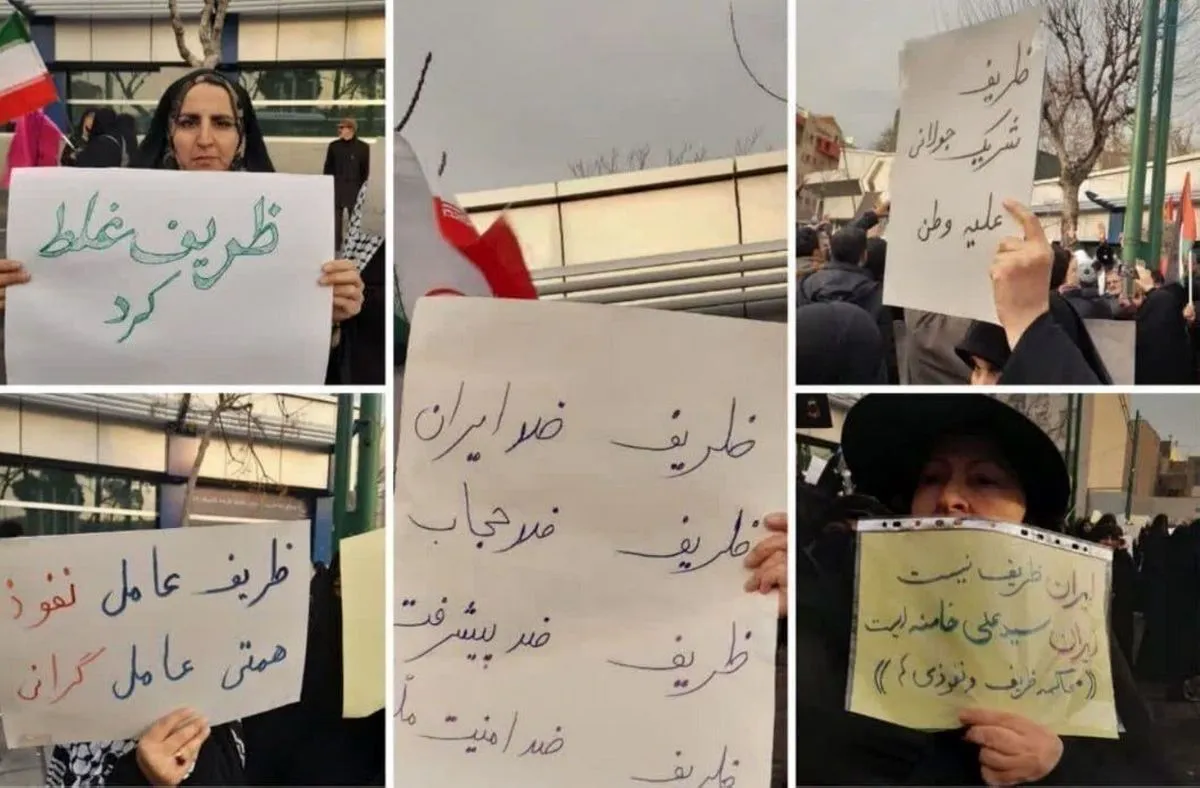 ظریف غلط
کرد
ظریف ضد ایران
ظریف ضد حجاب
ظریف ضد پیشرفت
ظریف ضد امنیت
ظریف
ظریف
شریک جولانی
علیه وطن
ظریف عامل نفوذ
همتی عامل گرانی
ایران ظریف نیست
ایران سید علی خامنه ایست
((محاکمه ظریف و نفوذی ها))